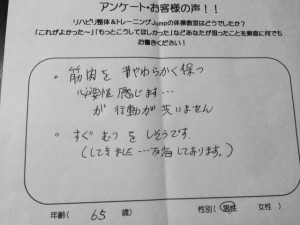 アンケート・お客様の声！！
リハビリ整体＆トレーニングJumpの体操教室はどうでしたか？
「これがよかった～」「もっとこうしてほしかった」などあなたが思ったことを素直に何でも
お書きください！
。筋肉を やわらかく保つ
必要性 感じます…
が 行動が 伴いません
。すぐ むつ をしそうです.
(してきました…反省しております。)
年齢（ 65 歳） 性別（ 男性 女性 ）